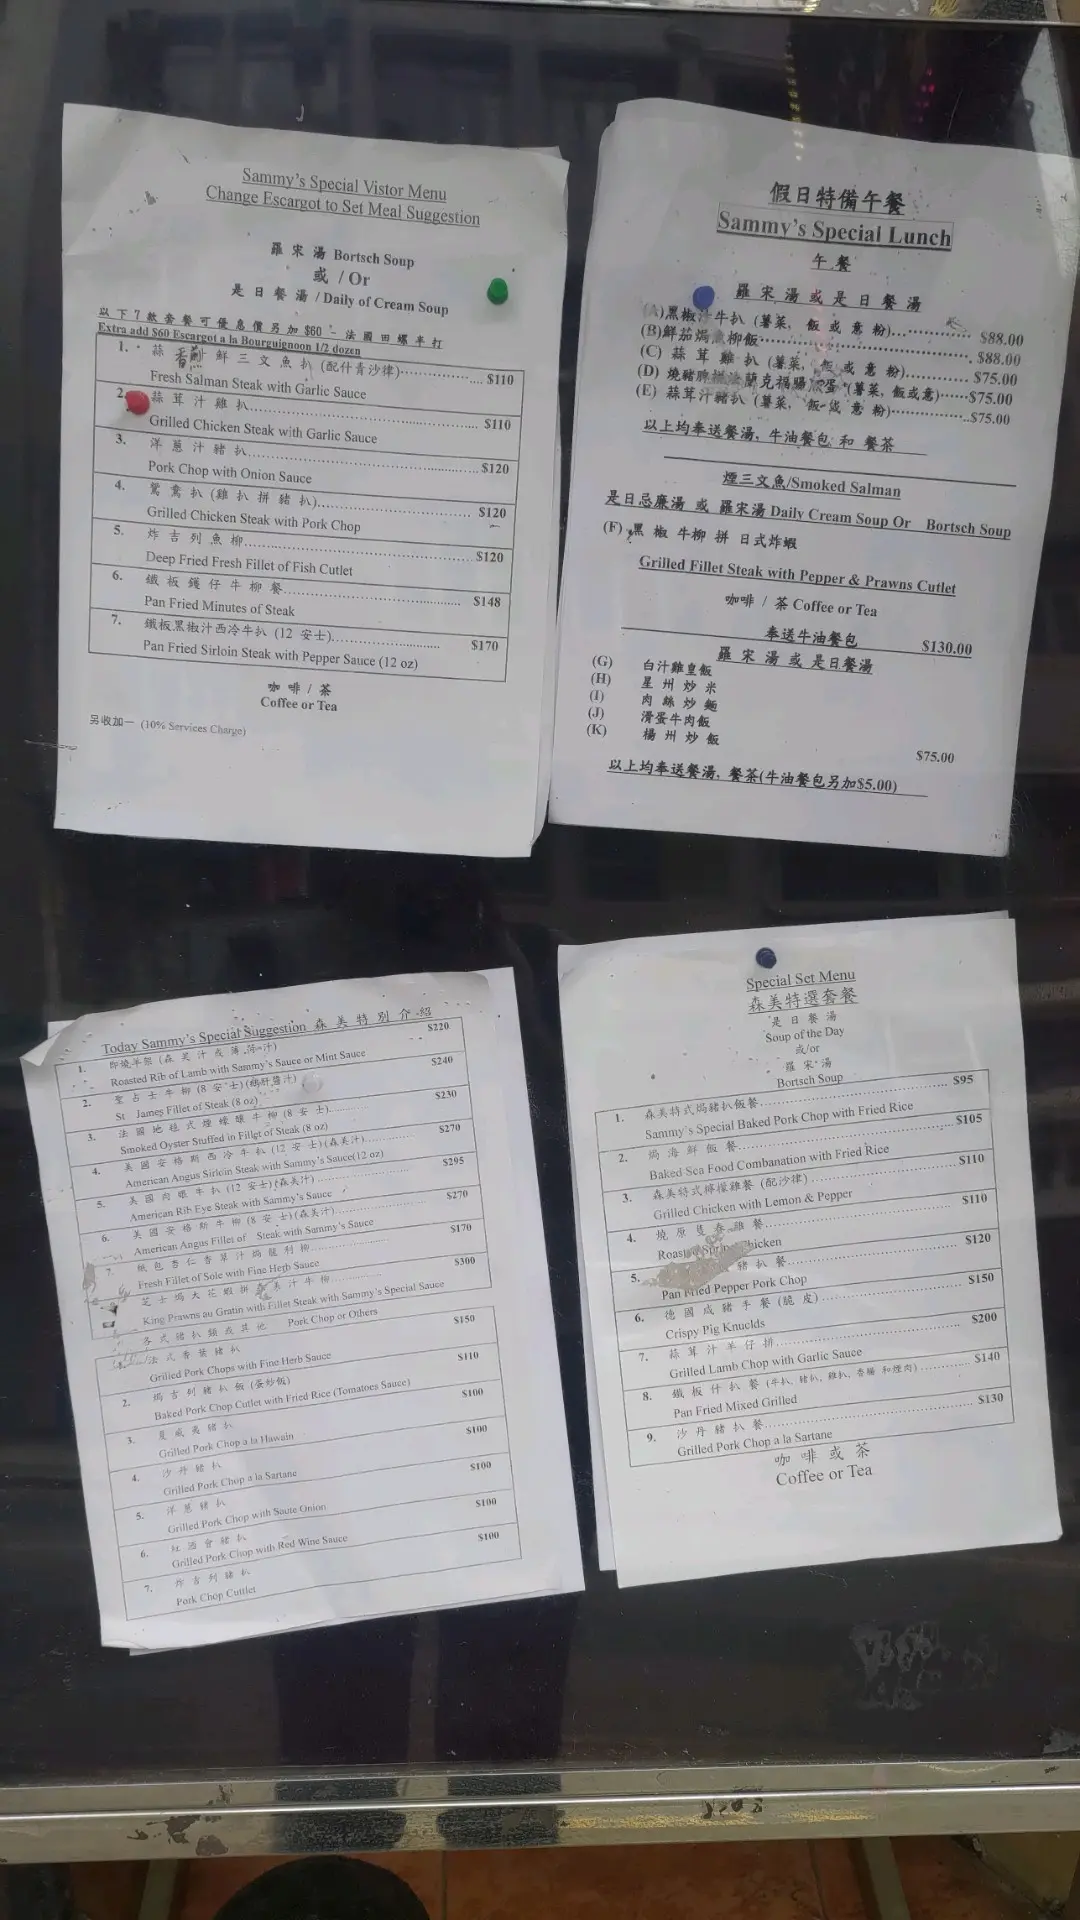 Sammy's Special Vistor Menu
Change Escargot to Set Meal Suggestion
羅宋湯 Bortsch Soup
或 / Or
是日餐湯 / Daily of Cream Soup
以下7款套餐可優惠價另加 $60 - 法國田螺半打
Extra add $60 Escargot a la Bourguignoon 1/2 dozen
1. 蒜香 鮮三文魚扒 (配什青沙律) $110
Fresh Salman Steak with Garlic Sauce
2. 蒜茸汁雞扒 $110
Grilled Chicken Steak with Garlic Sauce
3. 洋蔥汁豬扒 $120
Pork Chop with Onion Sauce
4. 鴛鴦扒 (雞扒拼豬扒) $120
Grilled Chicken Steak with Pork Chop
5. 炸吉列魚柳 $120
Deep Fried Fresh Fillet of Fish Cutlet
6. 鐵板鑊仔牛柳餐 $148
Pan Fried Minutes of Steak
7. 鐵板黑椒汁西冷牛扒 (12 安士) $170
Pan Fried Sirloin Steak with Pepper Sauce (12 oz)
咖啡 / 茶
Coffee or Tea
另收加一 (10% Services Charge)
假日特備午餐
Sammy's Special Lunch
午餐
羅宋湯或是日餐湯
(A) 黑椒汁牛扒 (薯菜, 飯或意粉) $88.00
(B) 鮮茄焗 柳飯 $88.00
(C) 蒜茸雞扒 (薯菜, 飯或意粉) $75.00
(D) 燒豬脾拼法蘭克福腸 蛋 (薯菜, 飯或意) $75.00
(E) 蒜茸汁豬扒 (薯菜, 飯或意粉) $75.00
以上均奉送餐湯, 牛油餐包 和 餐茶
煙三文魚/Smoked Salman
是日忌廉湯 或 羅宋湯 Daily Cream Soup Or Bortsch Soup
(F) 黑椒牛柳拼日式炸蝦
Grilled Fillet Steak with Pepper & Prawns Cutlet
咖啡 / 茶 Coffee or Tea
奉送牛油餐包 $130.00
羅宋湯或是日餐湯
(G) 白汁雞皇飯
(H) 星州炒米
(I) 肉絲炒麵
(J) 滑蛋牛肉飯
(K) 楊州炒飯
$75.00
以上均奉送餐湯, 餐茶(牛油餐包另加$5.00)
Today Sammy's Special Suggestion 森美特別介紹
1. 即燒羊架 (森美汁或薄荷汁) $220
Roasted Rib of Lamb with Sammy's Sauce or Mint Sauce
2. 聖占士牛柳 (8 安士) (鵝肝醬汁) $240
St James Fillet of Steak (8 oz)
3. 法國地道式煙蠔釀牛柳 (8 安士) $230
Smoked Oyster Stuffed in Fillet of Steak (8 oz)
4. 美國安格斯西冷牛扒 (12 安士) (森美汁) $270
American Angus Sirloin Steak with Sammy's Sauce(12 oz)
5. 美國肉眼牛扒 (12 安士) (森美汁) $295
American Rib Eye Steak with Sammy's Sauce
6. 美國安格斯牛柳 (8 安士) (森美汁) $270
American Angus Fillet of Steak with Sammy's Sauce
7. 紙包杏仁香草汁焗龍利柳 $170
Fresh Fillet of Sole with Fine Herb Sauce
芝士焗大花蝦拼 美汁牛柳 $300
King Prawns au Gratin with Fillet Steak with Sammy's Special Sauce
各式豬扒類或其他 Pork Chop or Others
法式香葉豬扒 $150
Grilled Pork Chops with Fine Herb Sauce
2. 焗吉列豬扒飯 (蛋炒飯) $110
Baked Pork Chop Cutlet with Fried Rice (Tomatoes Sauce)
3. 夏威夷豬扒 $100
Grilled Pork Chop a la Hawain
4. 沙丹豬扒 $100
Grilled Pork Chop a la Sartane
5. 洋蔥豬扒 $100
Grilled Pork Chop with Saute Onion
6. 紅酒會豬扒 $100
Grilled Pork Chop with Red Wine Sauce
7. 炸吉列豬扒 $100
Pork Chop Cuttlet
Special Set Menu
森美特選套餐
是日餐湯
Soup of the Day
或/or
羅宋湯
Bortsch Soup
1. 森美特式焗豬扒飯餐 $95
Sammy's Special Baked Pork Chop with Fried Rice
2. 焗海鮮飯餐 $105
Baked Sea Food Combanation with Fried Rice
3. 森美特式檸檬雞餐 (配沙律) $110
Grilled Chicken with Lemon & Pepper
4. 燒原隻春雞餐 $110
Roast Spring Chicken
5. 豬扒餐 $120
Pan Fried Pepper Pork Chop
6. 德國咸豬手餐 (脆皮) $150
Crispy Pig Knuclds
7. 蒜茸汁羊仔拼 $200
Grilled Lamb Chop with Garlic Sauce
8. 鐵板什扒餐 (牛扒, 豬扒, 雞扒, 香腸 和煙肉) $140
Pan Fried Mixed Grilled
9. 沙丹豬扒餐 $130
Grilled Pork Chop a la Sartane
咖啡或茶
Coffee or Tea